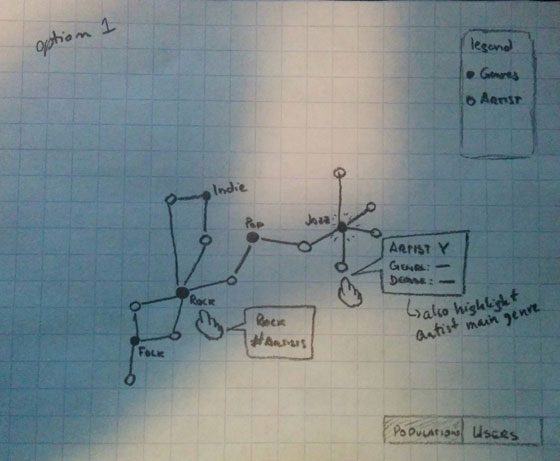 option 1
legend
Genres
Artist
Indie
Pop
Jazz
Rock
Folk
Artist Y
Genre: —
Degree: —
also highlight
artist main genre
Rock
#Artists
Population
Users